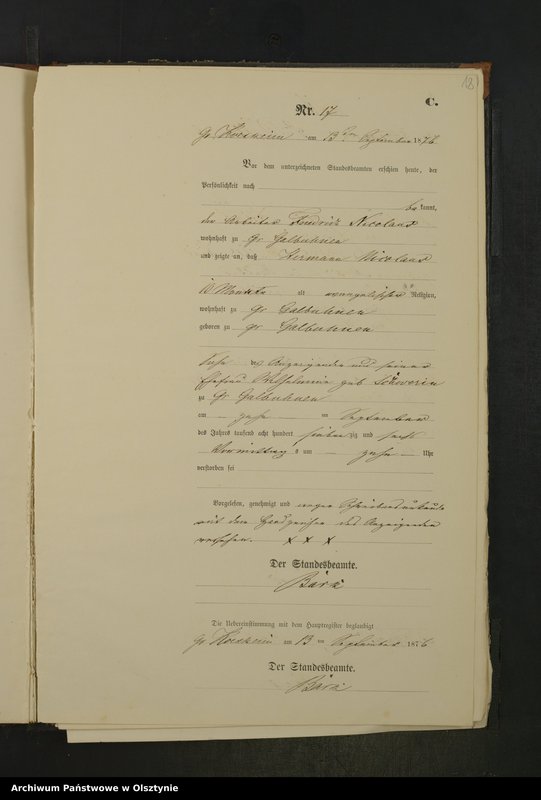 18
C.
Nr. 17
Gr. am 13ten September 1876
Vor dem unterzeichneten Standesbeamten erschien heute, der
Persönlichkeit nach
bekannt,
der Arbeiter Friedrich Nicolaus
wohnhaft zu Gr. Galbuhnen
und zeigte an, daß Hermann Nicolaus
10 Monate alt evangelischer Religion,
wohnhaft zu Gr. Galbuhnen
geboren zu Gr. Galbuhnen
Sohn des Anzeigenden und seiner
Ehefrau Wilhelmine geb. Schwerin
zu Gr. Galbuhnen
am zehn ten September
des Jahres tausend acht hundert siebenzig und sechs
Vormittags um zehn Uhr
verstorben sei
Vorgelesen, genehmigt und wegen Schreibensunkunde
mit dem Handzeichen des Anzeigenden
versehen. X X X
Der Standesbeamte.
Die Uebereinstimmung mit dem Hauptregister beglaubigt
Gr. am 13 ten September 1876
Der Standesbeamte.
Archiwum Państwowe w Olsztynie